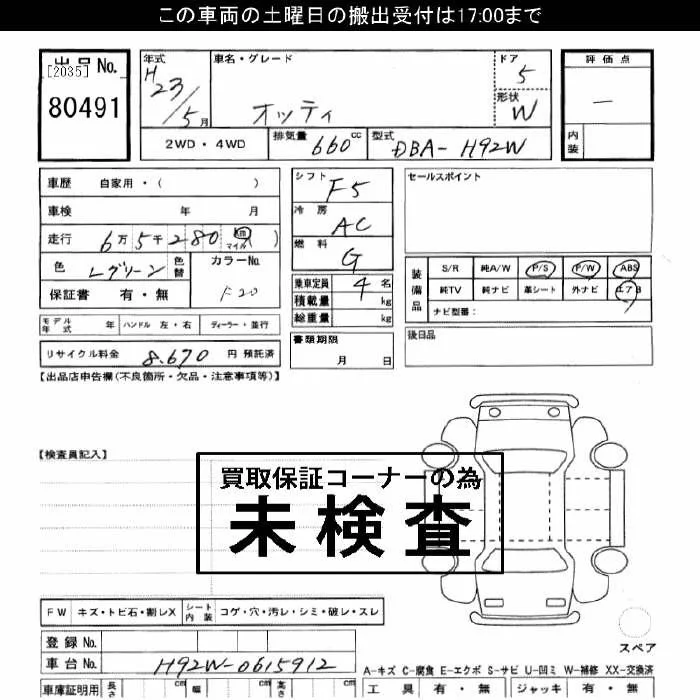 この車両の土曜日の搬出受付は17:00まで
出品No.
[2035]
80491
年式 H23/5月
車名・グレード
オッティ
ドア 5
形状 W
評価点
—
内装
2WD・4WD
排気量 660cc
型式 DBA-H92W
車歴 自家用・( )
車検 年 月
走行 6万5千280 km マイル ( )
色 Lグリーン 色替
カラーNo. F20
保証書 有・無
シフト F5
冷房 AC
燃料 G
乗車定員 4名
積載量 kg
総重量 kg
セールスポイント
装備品
S/R 純A/W P/S P/W ABS
純TV 純ナビ 革シート 外ナビ エアB
ナビ型番:
モデル年式 年 ハンドル 左・右 ディーラー・並行
書類期限
月 日
後日品
リサイクル料金 8,670 円 預託済
【出品店申告欄(不良箇所・欠品・注意事項等)】
【検査員記入】
買取保証コーナーの為
未検査
FW キズ・トビ石・割レX シート内装 コゲ・穴・汚レ・シミ・破レ・スレ
スペア
登録No.
車台No. H92W-0615912
A-キズ C-腐食 E-エクボ S-サビ U-凹ミ W-補修 XX-交換済
車庫証明用 長さ cm 幅 cm 高さ cm
工具 有・無 ジャッキ 有・無